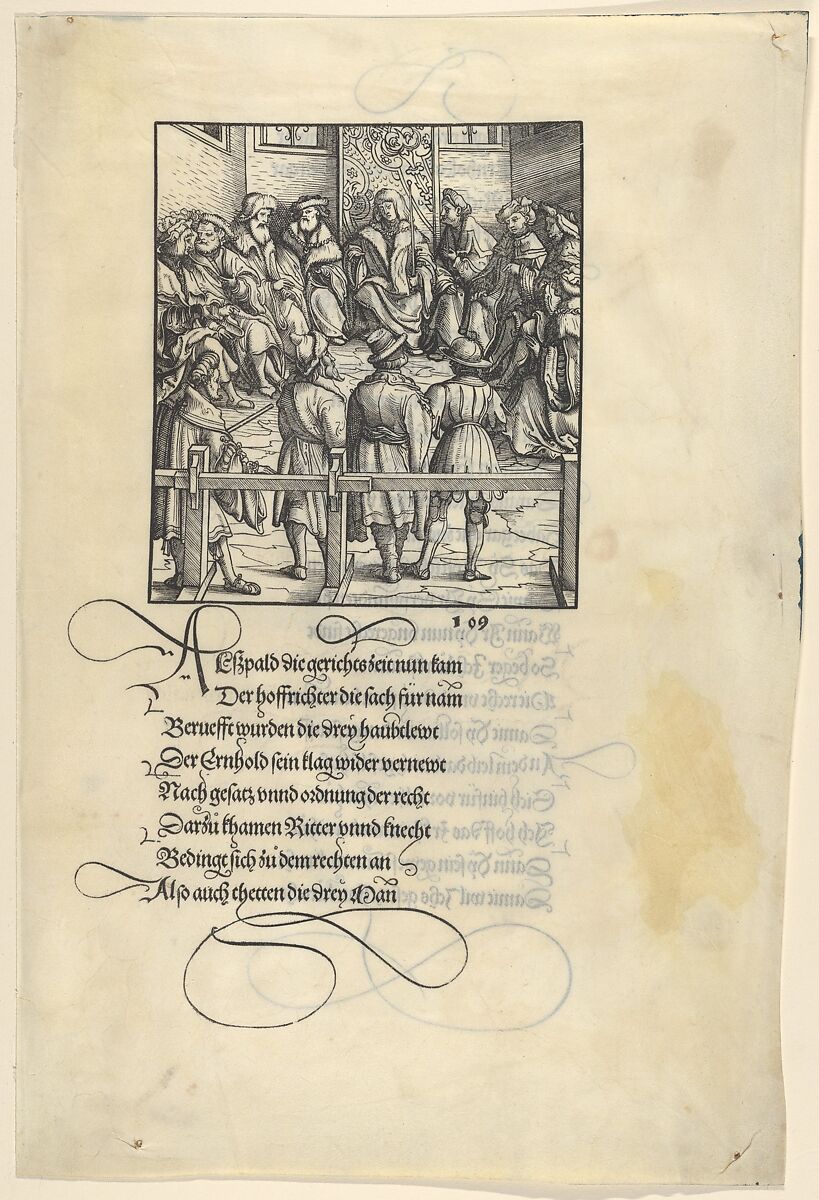 109
Alſzpald die gerichtszeit nun kam
Der hoffrichter die sach für nam̄
Beruefft wurden die drey haubtlewt
Der Ernhold sein klag wider vernewt
Nach gesatz vnnd ordnung der recht
Darzů khamen Ritter vnnd knecht
Bedingt sich zů dem rechten an
Also auch thetten die drey Man̄